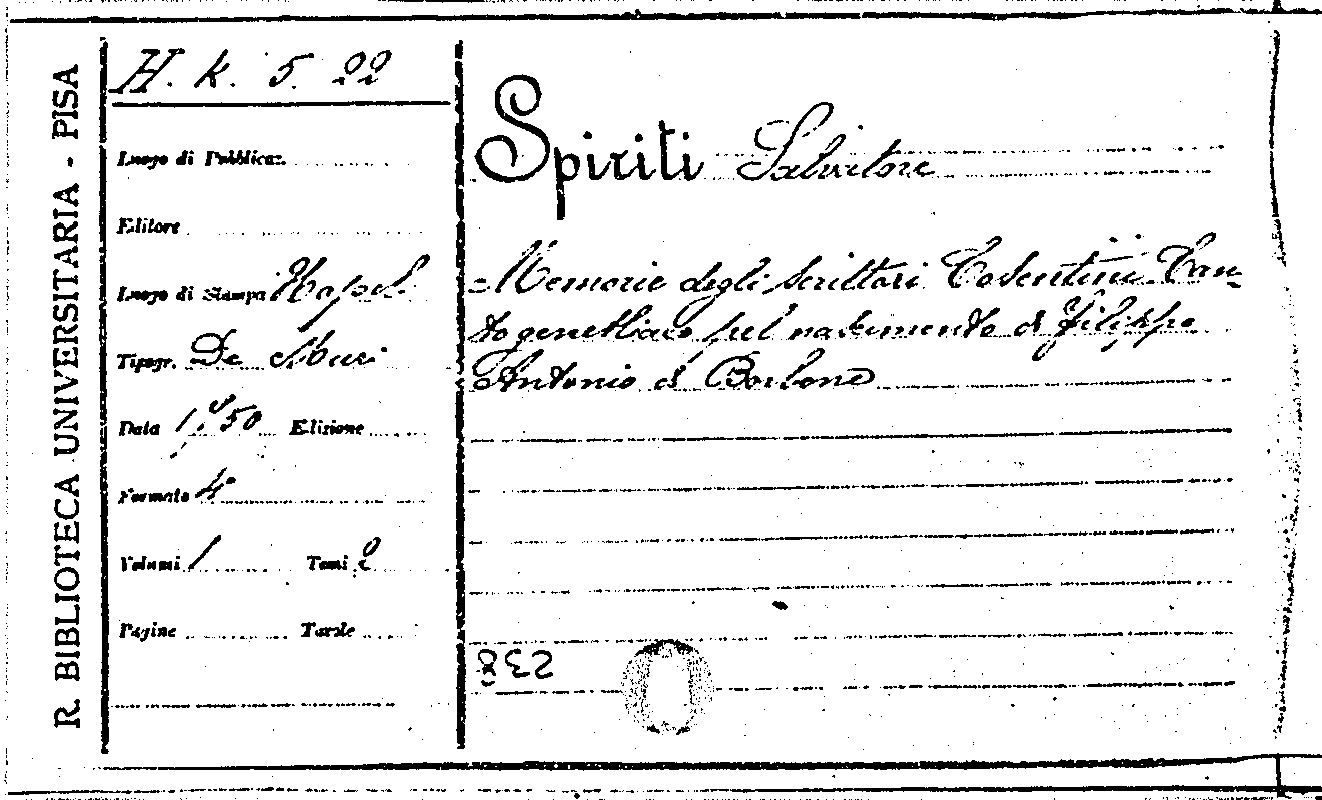 R. BIBLIOTECA UNIVERSITARIA - PISA
H. k. 5. 22
Luogo di Pubblicaz.
Editore
Luogo di Stampa Napol.
Tipogr. De Muzi
Data 1750 Edizione
Formato 4°
Volumi 1 Tomi 2
Pagine Tavole
Spiriti Salvatore
Memorie degli scrittori Cosentini Can-
to genetliaco pel nascimento di Filippo
Antonio di Borbone